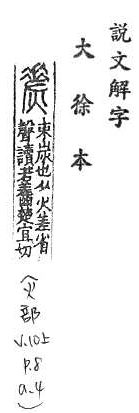 說文解字
大徐本
束炭也从火差省
聲讀若齹楚宜切
(火部
v.10上
p.8
a.4)